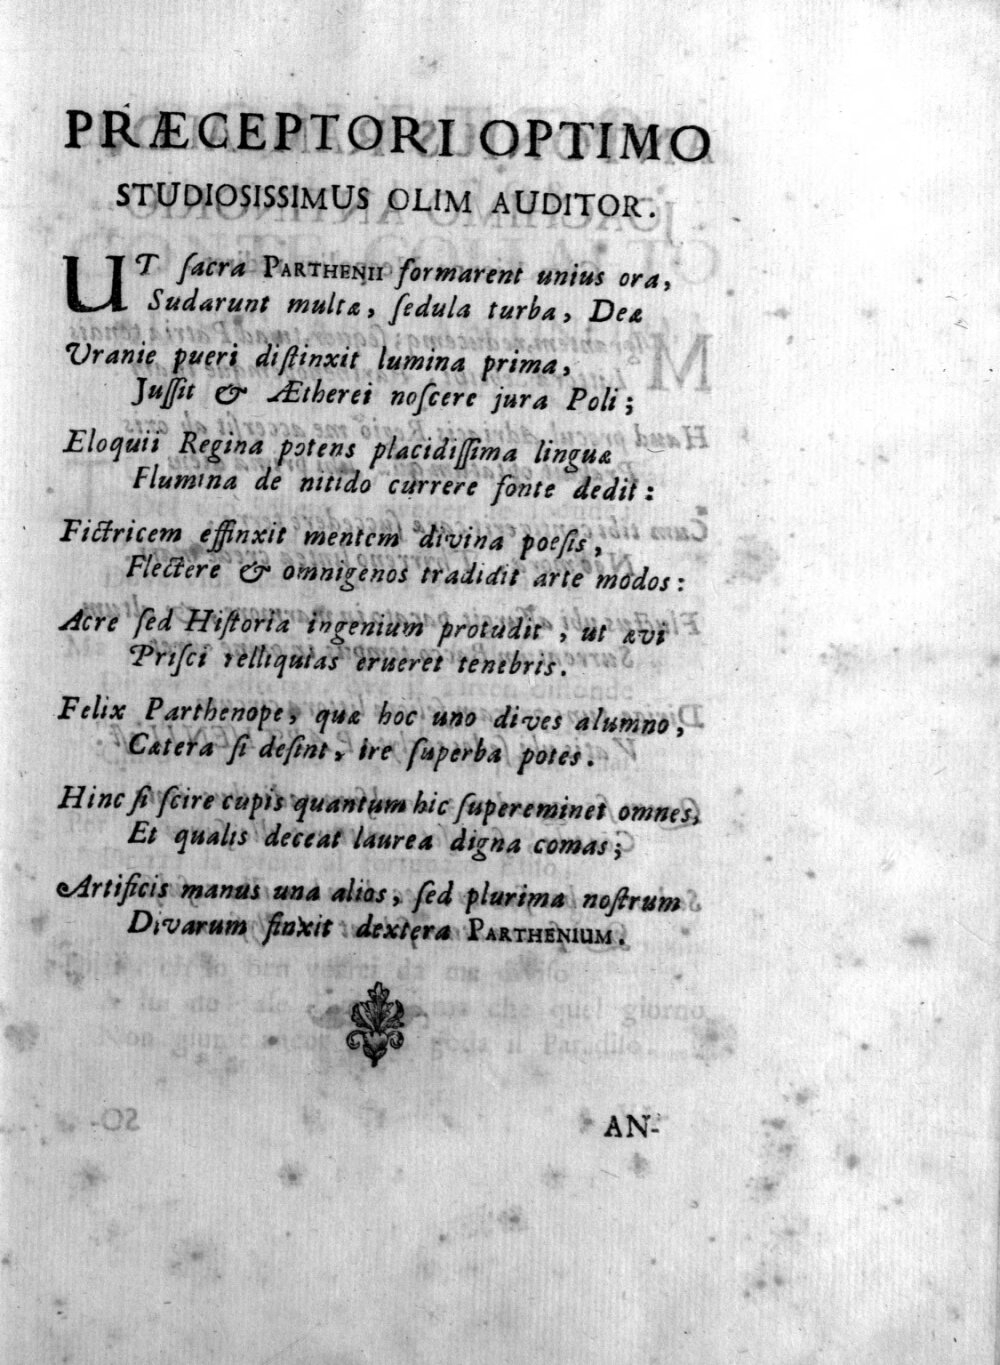 PRÆCEPTORI OPTIMO
STUDIOSISSIMUS OLIM AUDITOR.
UT ſacra PARTHENII formarent unius ora,
Sudarunt multæ, ſedula turba, Deæ
Vranie pueri diſtinxit lumina prima,
Juſſit & Ætherei noſcere jura Poli;
Eloquii Regina potens placidiſſima linguæ
Flumina de nitido currere fonte dedit:
Fictricem effinxit mentem divina poeſis,
Flectere & omnigenos tradidit arte modos:
Acre ſed Hiſtoria ingenium protudit, ut ævi
Priſci relliquias erueret tenebris.
Felix Parthenope, quæ hoc uno dives alumno,
Cætera ſi deſint, ire ſuperba potes.
Hinc ſi ſcire cupis quantum hic ſupereminet omnes,
Et qualis deceat laurea digna comas;
Artificis manus una alios, ſed plurima noſtrum
Divarum finxit dextera PARTHENIUM.
AN-